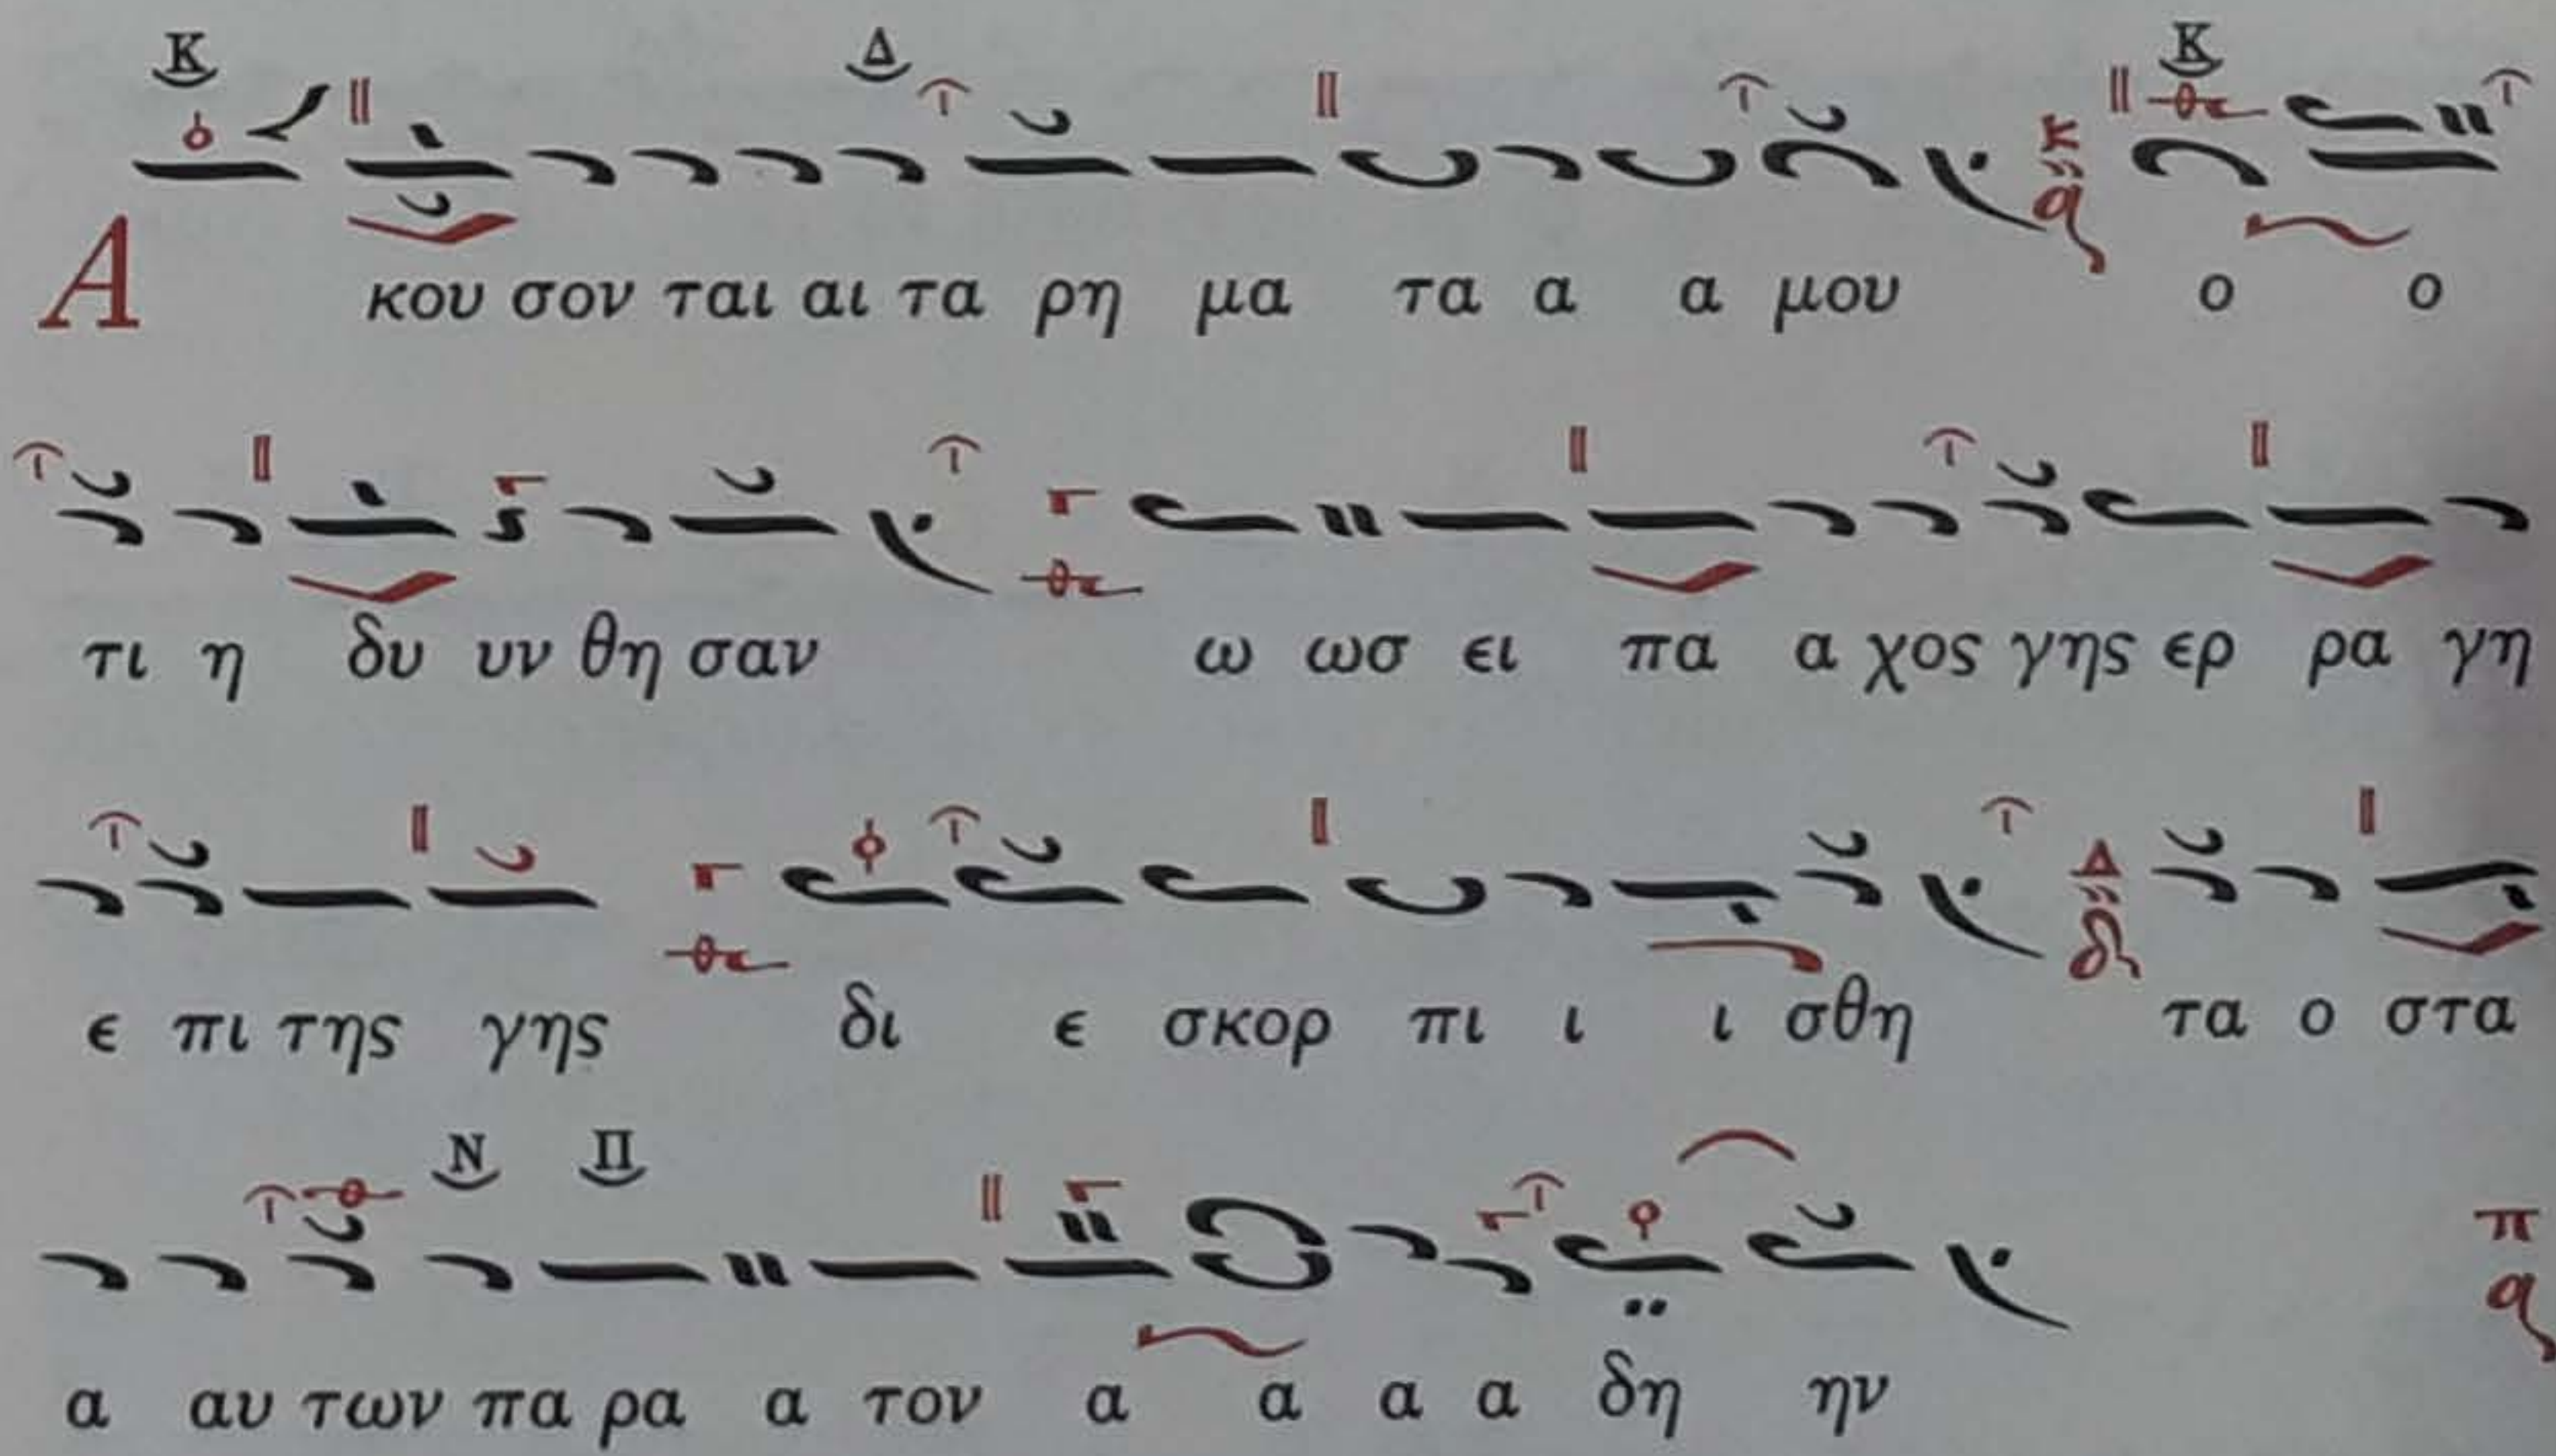 Α κου σον ται αι τα ρη μα τα α α μου ο ο
τι η δυ υν θη σαν ω ωσ ει πα α χος γης ερ ρα γη
ε πι της γης δι ε σκορ πι ι ι σθη τα ο στα
α αυ των πα ρα α τον α α α α δη ην